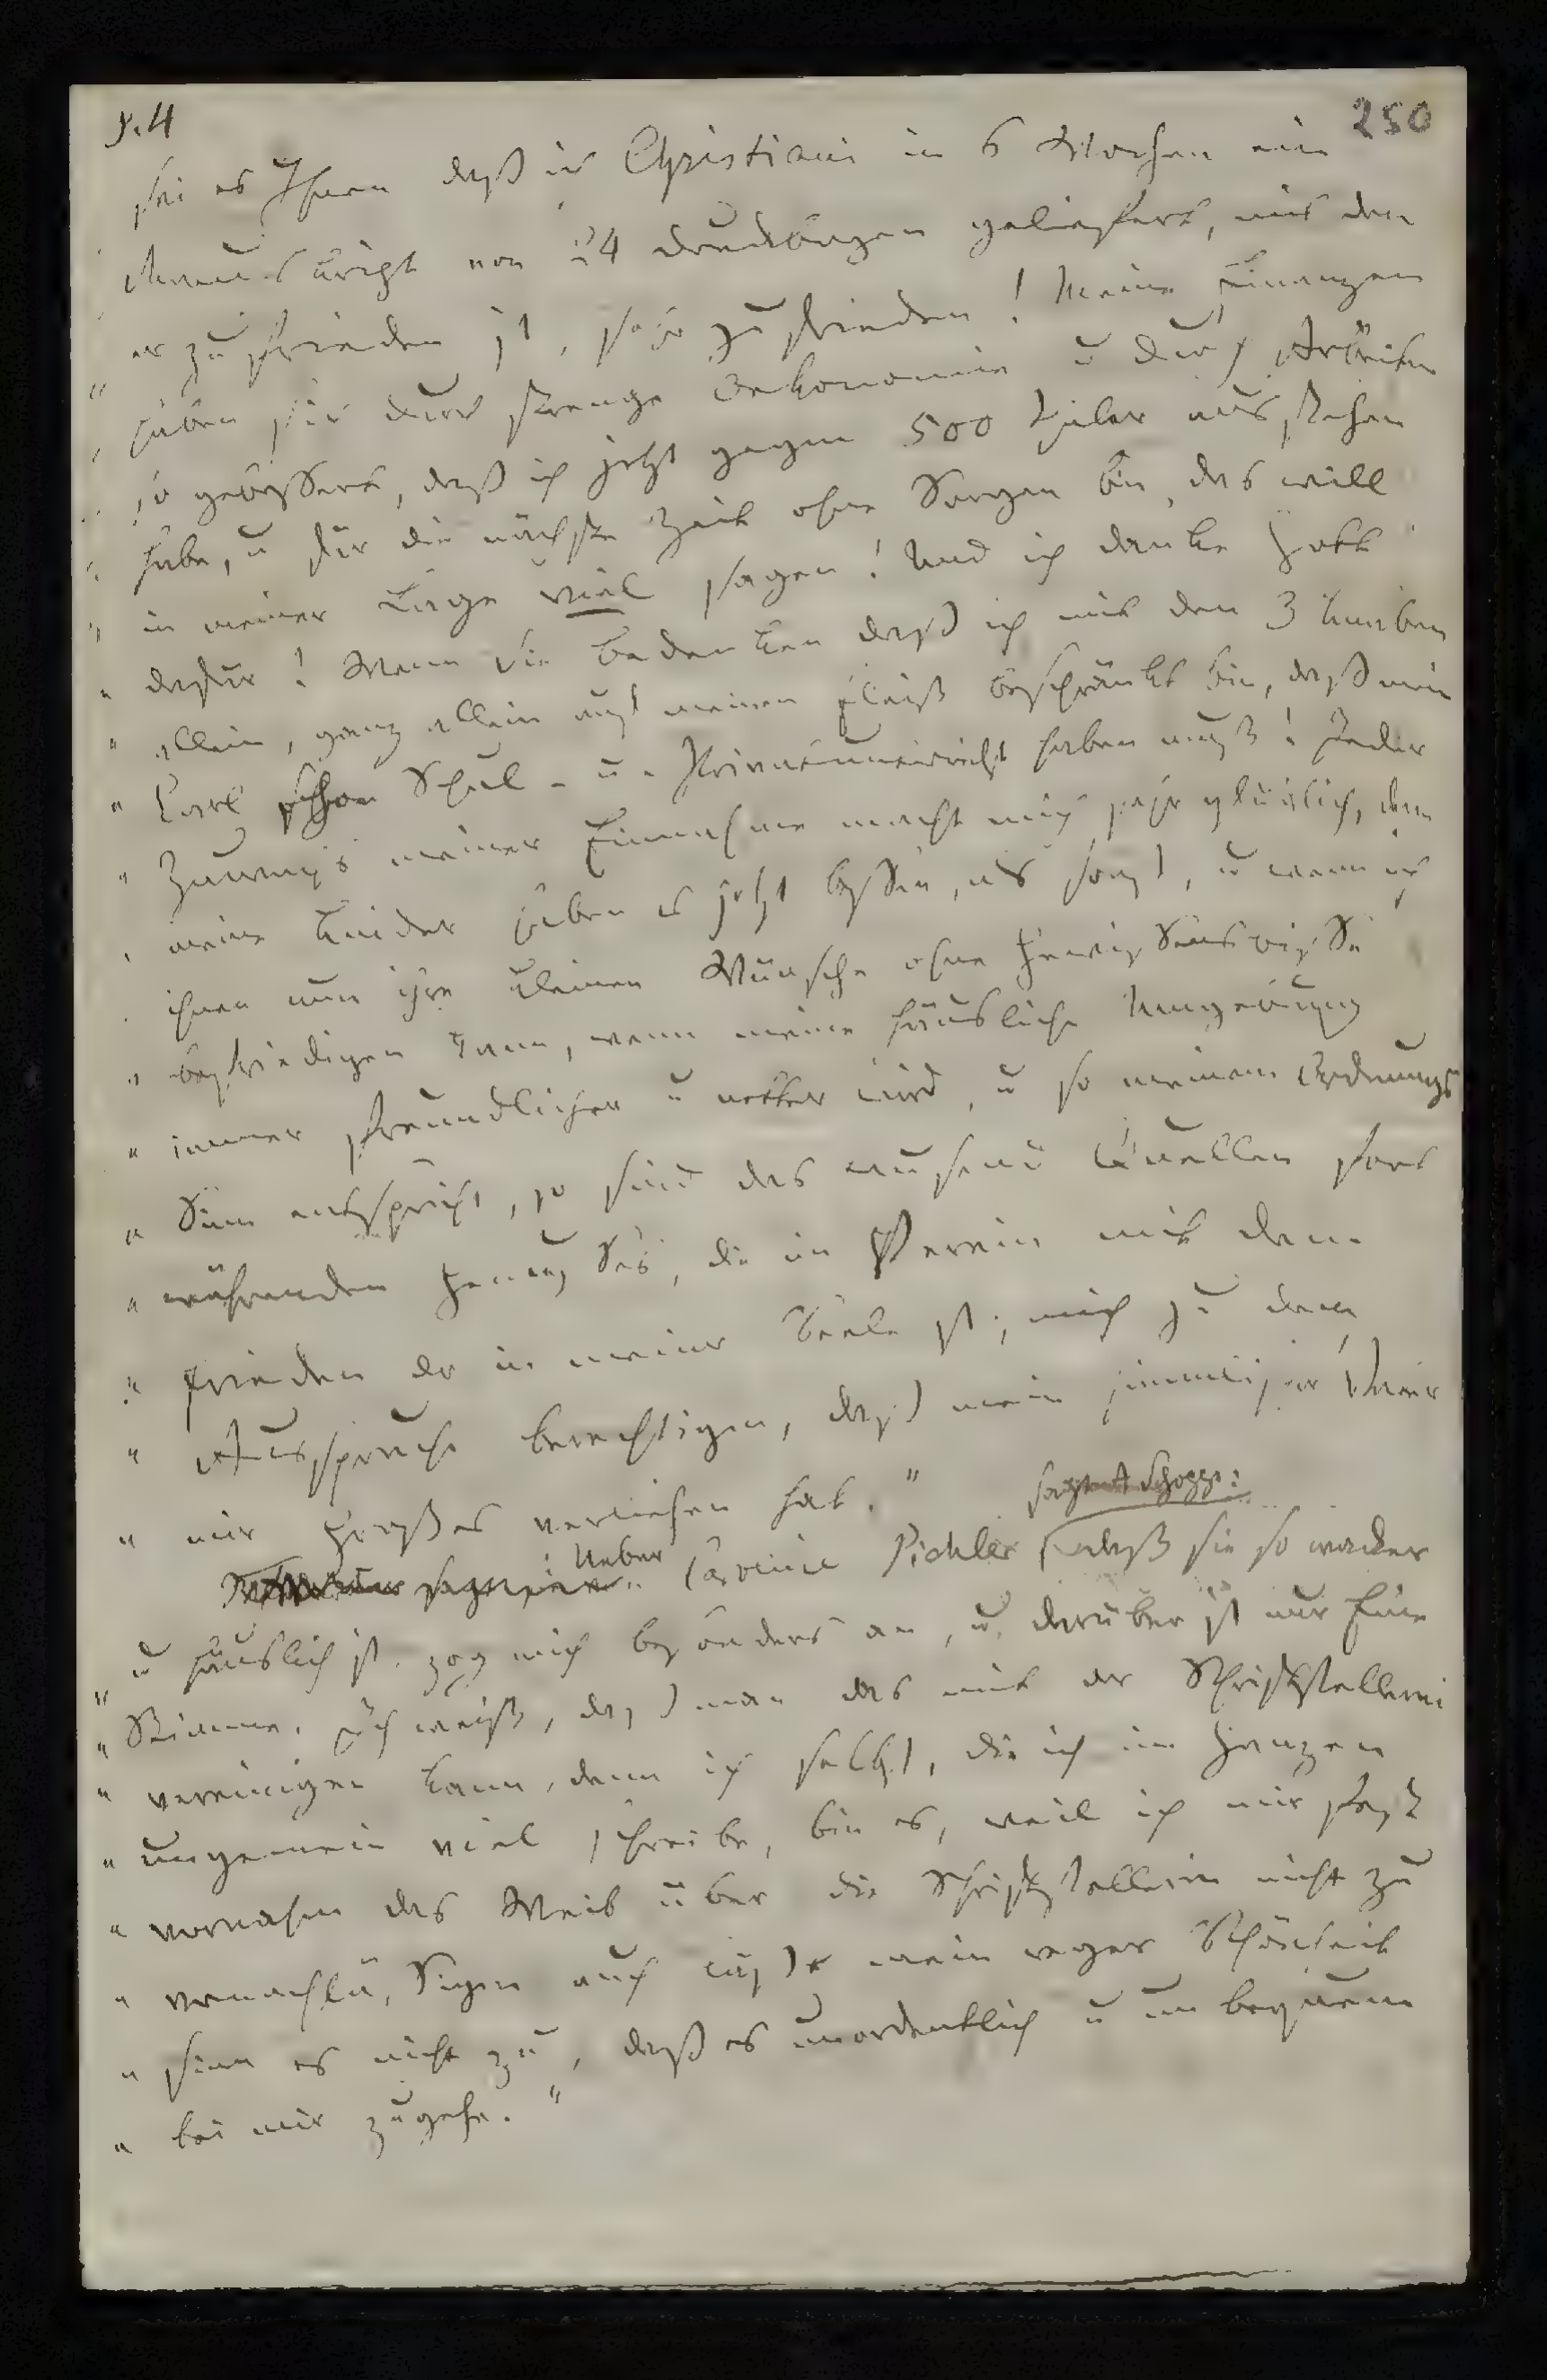 p. 4
250
sei es Ihnen daß ich Christiani in 6 Wochen ein
Manuskript von 24 Druckbogen geliefert, mit dem
" er zufrieden ist, sehr zufrieden! Meine Finanzen
" haben sich durch strenge Oekonomie u durch Arbeiten
" so gebessert, daß ich jetzt gegen 500 Thaler ausstehen
" habe, u für die nächste Zeit ohne Sorgen bin, das will
" in meiner Lage viel sagen! Und ich danke Gott
" dafür! Wenn Sie bedenken daß ich mit den 3 Knaben
" allein, ganz allein auf meinen Fleiß beschränkt bin, daß mein
" Carl schon Schul- u. Privatunterricht haben muß! Jeder
" Zuwachs meiner Einnahme macht mich sehr glücklich, denn
" meine Kinder haben es jetzt besser, als sonst, u wenn ich
" ihnen nun ihre kleinen Wünsche ohne Gewissensbisse
" befriedigen kann, wenn meine häusliche Umgebung
" immer freundlicher u netter wird, u so meinem Ordnungs
" Sinn entspricht, so sind das tausend Quellen fort
" währenden Genusses, die im Verein mit dem
" Frieden der in meiner Seele ist, mich zu dem
" Ausspruche berechtigen, daß mein himmlischer Vater
" mir Großes verliehen hat."
sagt A Schopp:
Ueber Caroline Pichler daß sie so wacker
" u häuslich ist, zog mich besonders an, u. darüber ist nur Eine
" Stimme. Ich weiß, daß man das mit der Schriftstellerei
" vereinigen kann, denn ich selbst, die ich im Ganzen
" ungemein viel schreibe, bin es, weil ich mir fest
" vornahm das Weib über die Schriftstellerin nicht zu
" vernachlässigen auch läßt mein reger Schönheit
" sinn es nicht zu, daß es unordentlich u unbequem
" bei mir zugehe."